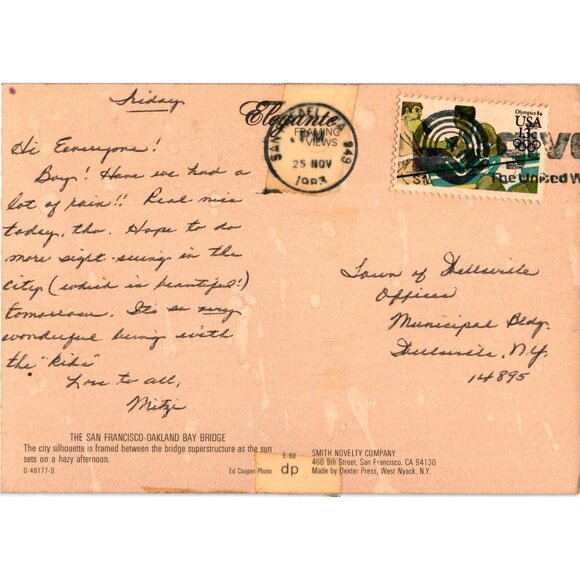 Friday
Hi Everyone!
Boy! Have we had a
lot of rain!! Real nice
today, tho. Hope to do
more sight-seeing in the
city (which is beautiful!)
tomorrow. It's so
wonderful being with
the "Kids"
Love to all,
Mitzi
Elegante
FRAMING
VIEWS
SAN RAFAEL CA 949
PM
25 NOV
1983
Olympics 84
USA
13c
The United W
Town of Wellsville
Offices
Municipal Bldg.
Wellsville, N.Y.
14895
THE SAN FRANCISCO-OAKLAND BAY BRIDGE
The city silhouette is framed between the bridge superstructure as the sun
sets on a hazy afternoon.
D-48177-D
Ed Cooper Photo
E 60
dp
SMITH NOVELTY COMPANY
460 9th Street, San Francisco, CA 94130
Made by Dexter Press, West Nyack, N.Y.